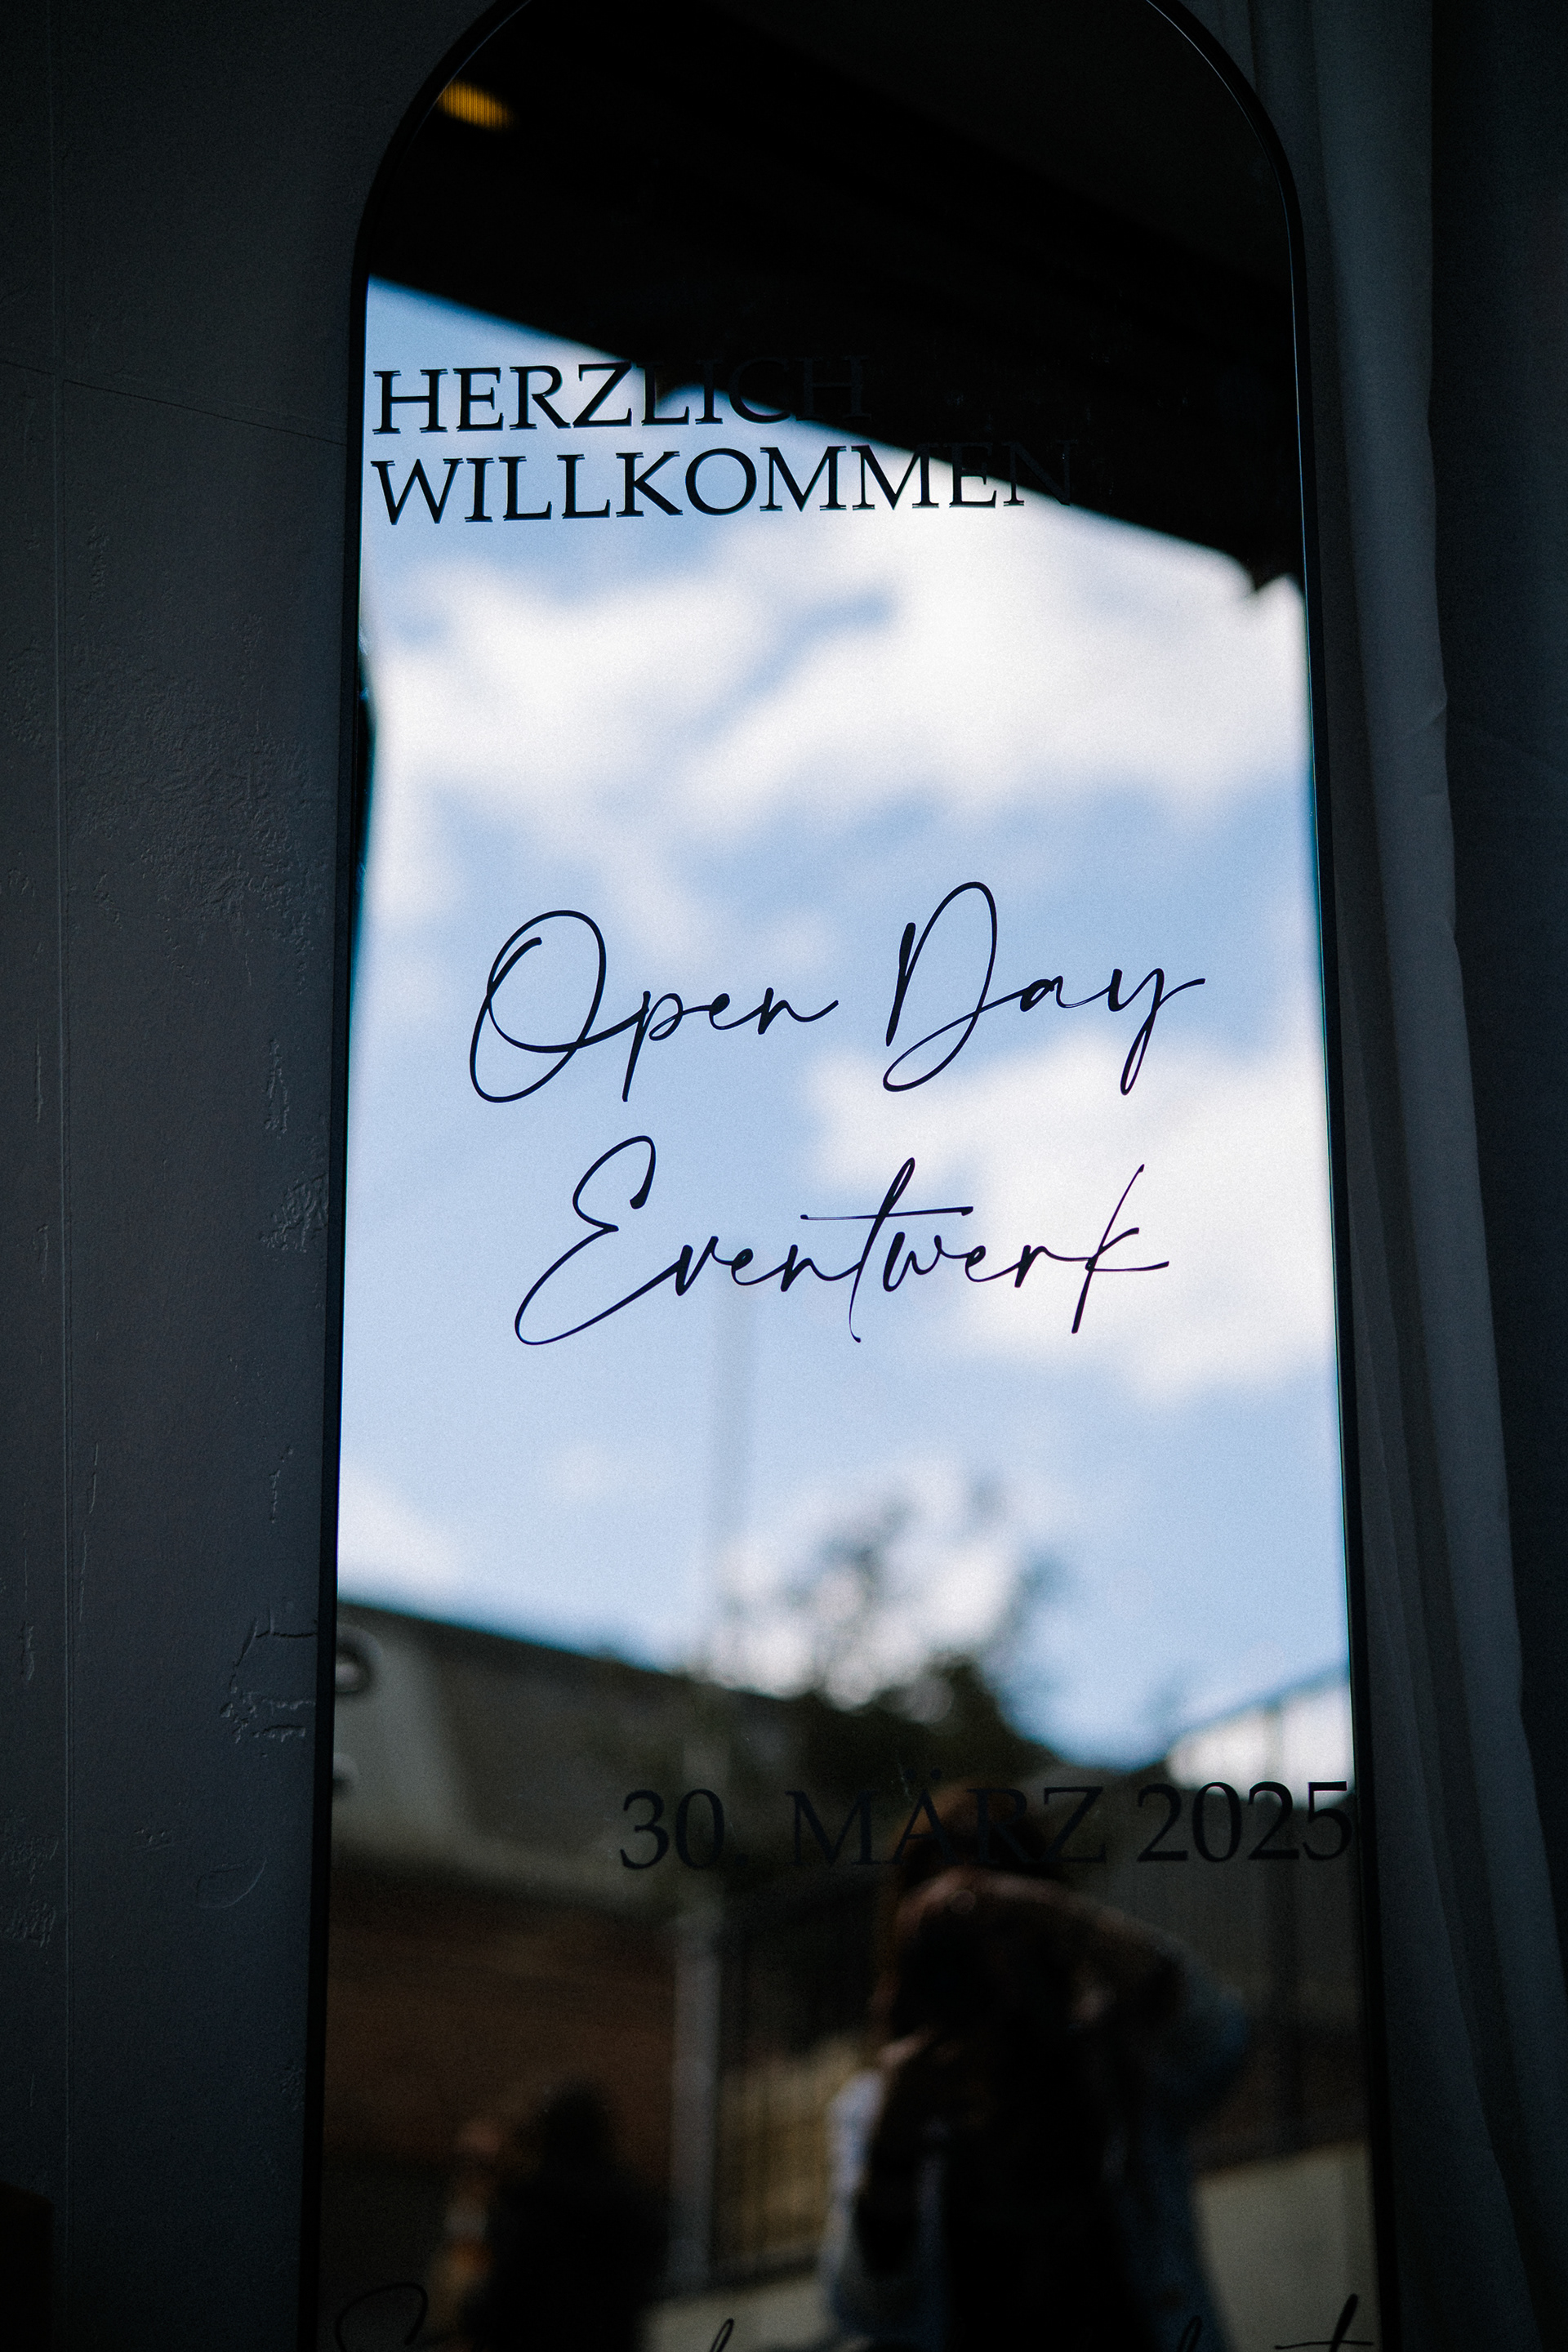 HERZLICH
WILLKOMMEN
Open Day
Eventwerk
30. MÄRZ 2025